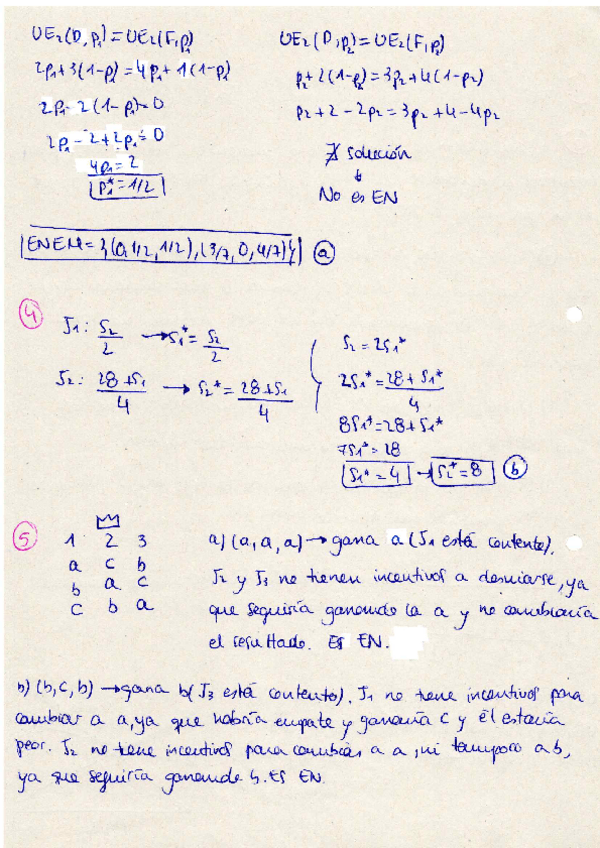 UE₂(D,p₁)=UE₂(F,p₁)
2p₁+3(1-p₁)=4p₁+1(1-p₁)
2p₁-2(1-p₁)=0
2p₁-2+2p₁=0
4p₁=2
p₁*=1/2
UE₂(D,p₂)=UE₂(F,p₂)
p₂+2(1-p₂)=3p₂+4(1-p₂)
p₂+2-2p₂=3p₂+4-4p₂
∄ solución
↓
No es EN
ENEM={(0,1/2,1/2),(3/7,0,4/7)} a
4
J₁: S₂/2 → S₁*=S₂/2
J₂: 28+S₁/4 → S₂*=28+S₁/4
S₂=2S₁*
2S₁*=28+S₁*/4
8S₁*=28+S₁*
7S₁*=28
S₁*=4 → S₂*=8 b
5
1 2 3
a c b
b a c
c b a
a) (a,a,a) → gana a (J₁ está contento).
J₂ y J₃ no tienen incentivos a desviarse, ya
que seguiría ganando la a y no cambiaría
el resultado. Es EN.
b) (b,c,b) → gana b (J₃ está contento). J₁ no tiene incentivos para
cambiar a a, ya que habría empate y ganaría c y él estaría
peor. J₂ no tiene incentivos para cambiar a a, ni tampoco a b,
ya que seguiría ganando b. Es EN.